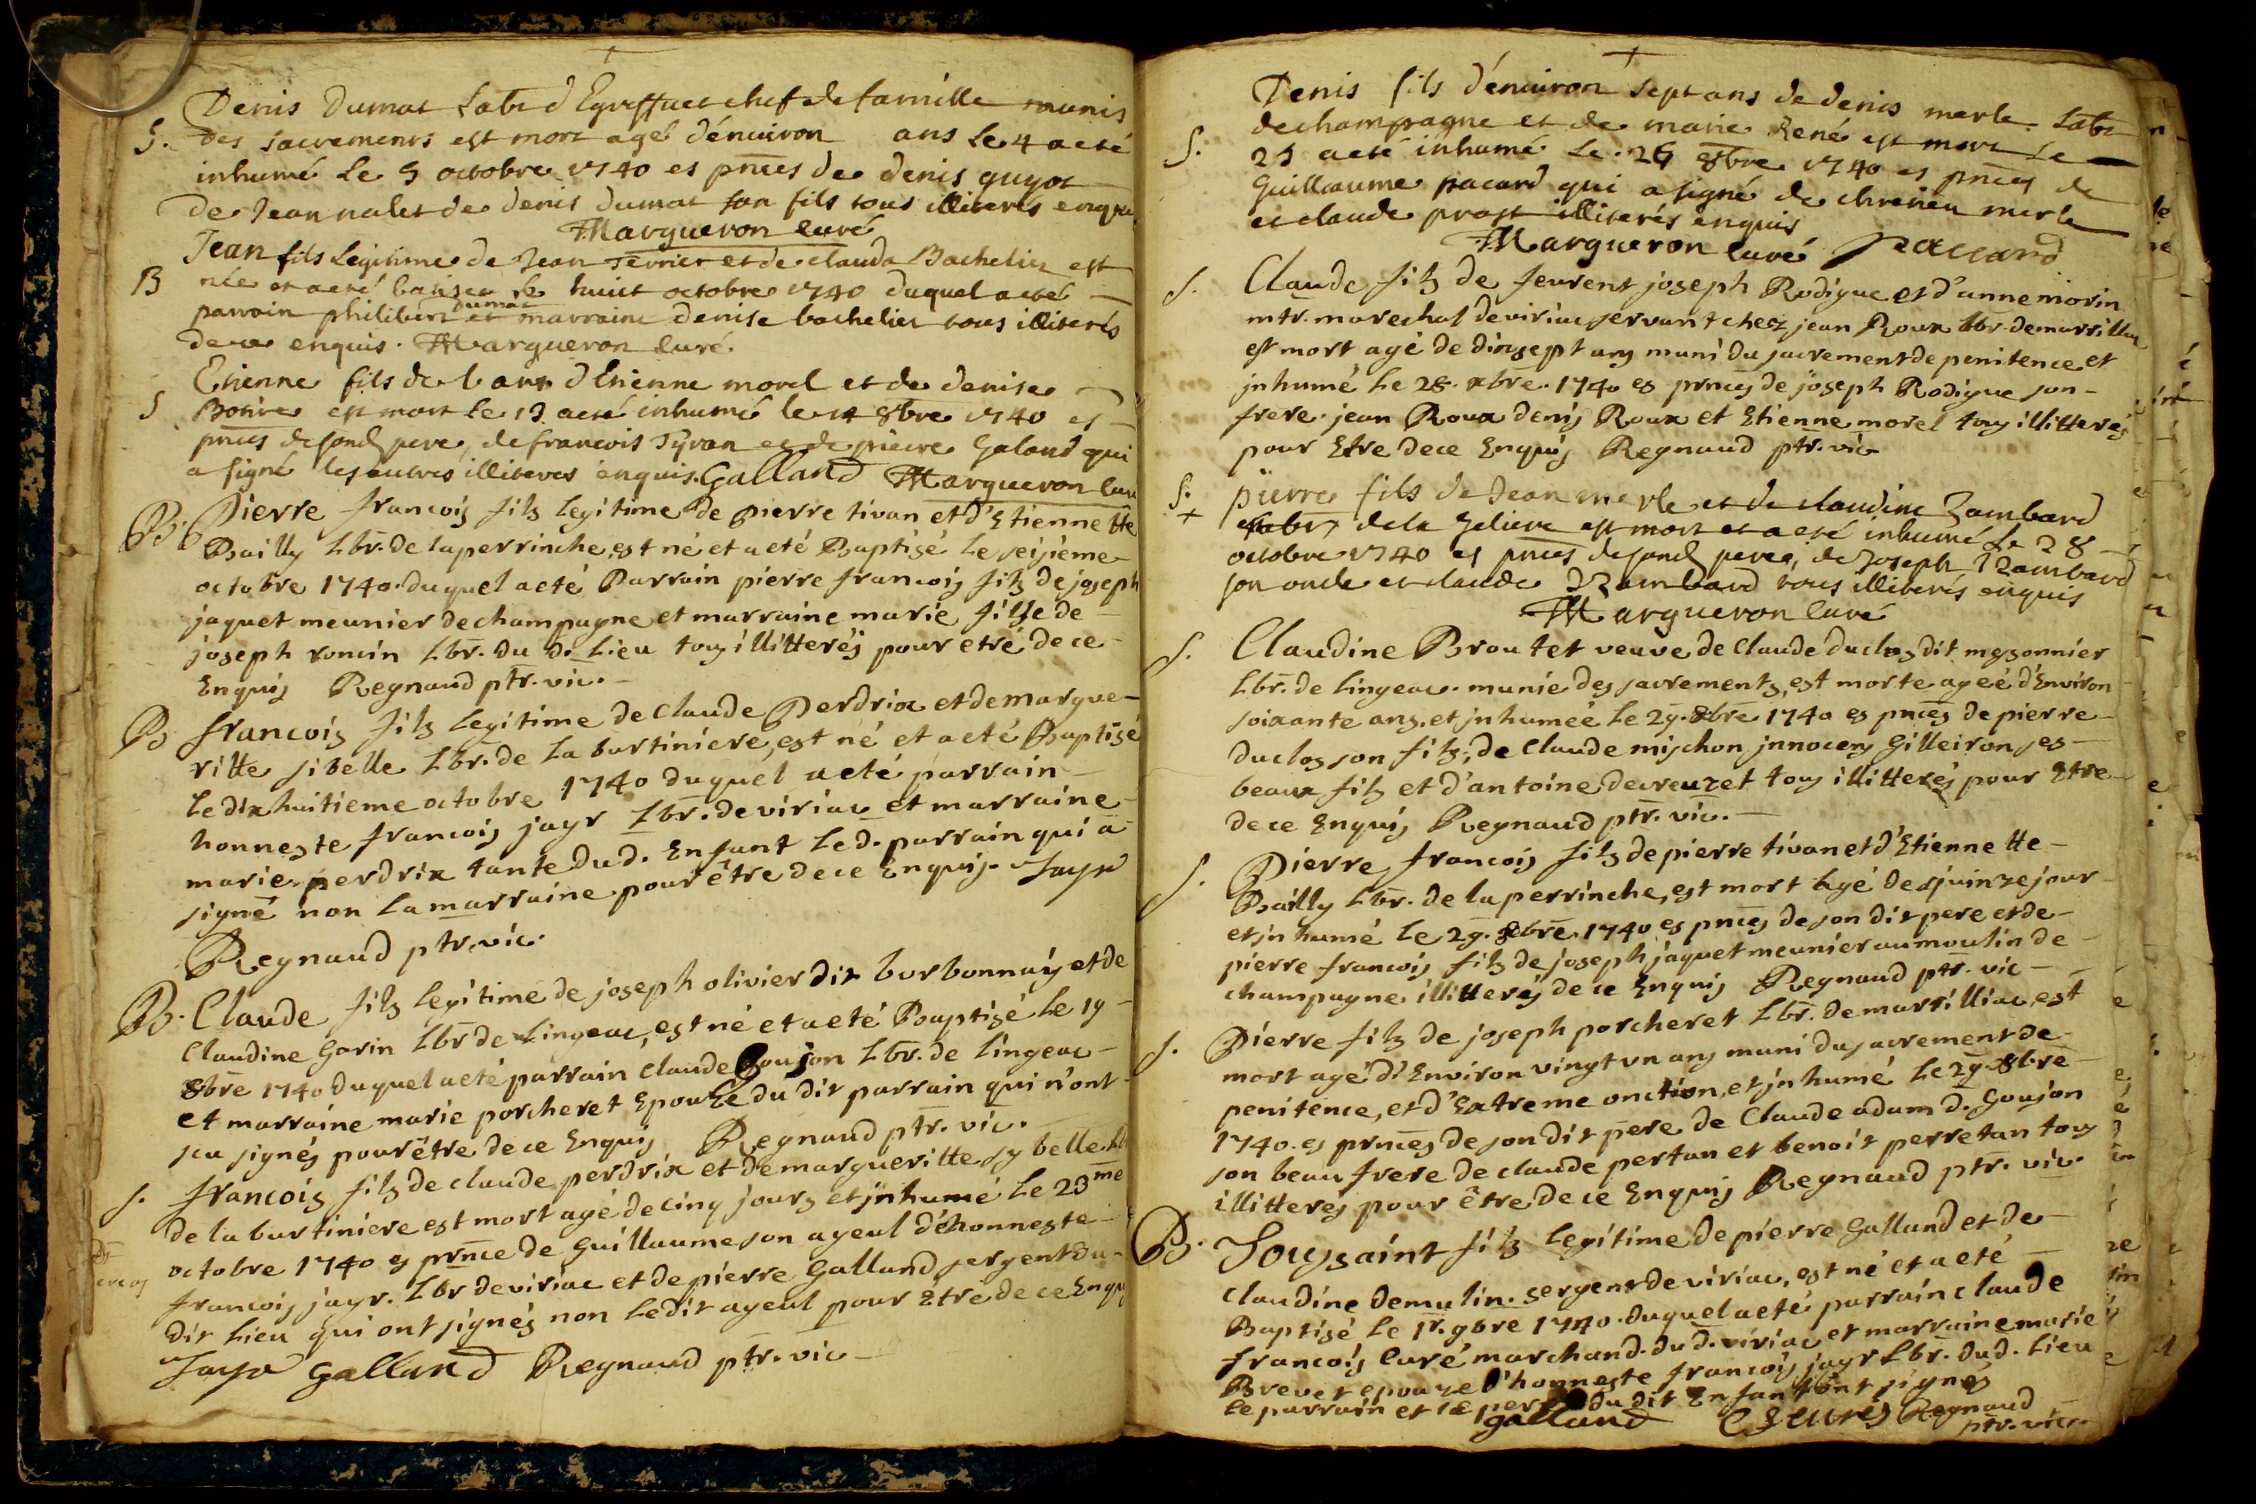 Denis Dumat Labr d'Egreffuet chef de famille munis
S. des sacrements est mort agé d'énuiron ans le 4 a eté
inhumé Le 5 octobre 1740 es pnces de denis guyot
de Jean nalet de denis dumat son fils tous illiterés enquis
Margueron Curé
Jean fils Legitime de Jean Fevrier et de clauda Bachelier est
B née et a eté batisee le huict octobre 1740 duquel a eté
parrain philibert dumat et marraine denise bachelier tous illiterés
de ce enquis. Margueron Curé
Etienne fils de l d'Etienne morel et de denise
S Botire est mort le 13 a eté inhumé le 14 8bre 1740 es
pnces de sond pere, de francois Tyran et de pierre Galand qui
a signé les autres illiteres enquis. Galland Margueron Curé
B. Pierre francois fils legitime de pierre tivan et d'Etiennette
Bailly Lbr. de la perrinche, est né et a eté Baptisé le seiziéme
octobre 1740. duquel a eté Parrain pierre francois fils de joseph
jaquet meunier de champagne et marraine marie fille de
joseph roncin Lbr. du d. Lieu tous illitterés pour etré de ce
Enquis Regnaud ptr. vic.
B francois fils legitime de Claude Perdrix et de margue-
ritte sibelle Lbr. de La burtiniere, est né et a eté Baptisé
le dix huitieme octobre 1740 duquel a eté parrain
honneste francois jayr Lbr. de viriac et marraine
marie perdrix tante dud. Enfant Le d. parrain qui a
signé non la marraine pour être de ce Enquis. Jayr
Regnaud ptr. vic.
B. Claude fils legitime de joseph olivier dit borbonnays et de
Claudine Gorin Lbr de Lingeac, est né et a eté Baptisé le 19
8bre 1740 duquel a eté parrain Claude Goujon Lbr. de lingeac
et marraine marie porcheret Epouse du dit parrain qui n'ont
sçu signés pour être de ce Enquis Regnaud ptr. vic.
S. francois fils de claude perdrix et de margueritte sybelle
de la burtiniere est mort agé de cinq jours et jnhumé le 23me
octobre 1740 es prnce de Guillaume son ayeul d'honneste
francois jayr. Lbr de viriac et de pierre Galland sergent du
dit Lieu qui ont signés non ledit ayeul pour Etre de ce Enquis
Jayr Galland Regnaud ptr. vic
Denis fils d'énuiron sept ans de denis merle. Labr
de champagne et de marie René est mort le
S. 25 a eté inhumé Le. 26 8bre 1740 es pnces de
Guillaume pacard qui a signé de chretien merle
et claude prost illiterés enquis
Margueron Curé Paccard
S. Claude fils de feurent joseph Rodigue et d'anne morin
mtr. marechal de viriac servant chez jean Roux lbr. de marrillac
est mort agé de dixsept ans muni du sacrement de penitence et
jnhumé le 28. xbre. 1740 es prnces de joseph Rodigue son
frere. jean Roux denis Roux et Etienne morel tous illitterés
pour Etre de ce Enquis Regnaud ptr. vic
S. pierre fils de Jean merle et de claudine Zambard
+ Labr de la Geliere est mort et a eté inhumé Le 28
octobre 1740 es pnces de sond pere, de Joseph Zambard
son oncle et claude Zambard tous illiterés enquis
Margueron Curé
S. Claudine Broutet veuve de Claude duclos dit mesonnier
Lbr. de Lingeac. munie des sacrements, est morte ageé d'Environ
soixante ans, et jnhumeé le 29. 8bre 1740 es pnces de pierre
duclos son fils, de Claude mischon jnnocens Gilleiron ses
beaux fils et d'antoine decreuzet tous illitterés pour Etre
de ce Enquis Regnaud ptr. vic.
S. Pierre francois fils de pierre tivan et d'Etiennette
Bailly Lbr. de la perrinche, est mort agé de quinze jour
et jnhumé le 29. 8bre 1740 es pnces de son dit pere et de
pierre francois fils de joseph jaquet meunier au moulin de
champagne illitterés de ce Enquis Regnaud ptr. vic
S. Pierre fils de joseph porcheret Lbr. de marrilliac, est
mort agé d'Environ vingt vn ans muni du sacrement de
penitence, et d'Extreme onction, et jnhumé le 29 8bre
1740. es prnces de son dit pere de Claude adam d. Goujon
son beau frere de claude pertan et benoit perretan tous
illitterés pour être de ce Enquis Regnaud ptr. vic.
B. Toussaint fils legitime de pierre Galland et de
Claudine demulin. sergent de viriac, est né et a eté
Baptisé le 1r. 9bre 1740. duquel a eté parrain claude
francois Curé marchand. dud. viriac et marraine marie
Brevet epouze d'honneste francois jayr Lbr. dud. Lieu
le parrain et le pere du dit Enfant ont signés
Galland Regnaud
ptr. vic.